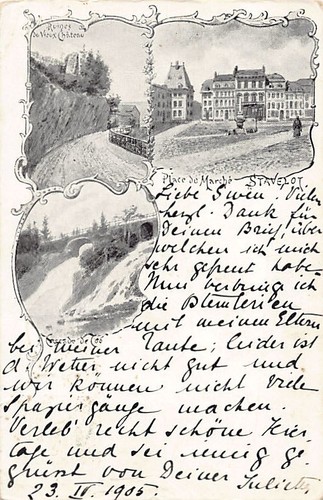 Ruines
du Vieux Château
Place du Marché STAVELOT
Cascade de Coo
Liebe Swen. Vielen
herzl. Dank für
Deinen Brief, über
welchen ich mich
sehr gefreut habe.
Nun verbringe ich
die Osterferien
mit meinen Eltern
bei meiner Tante; leider ist
d. Wetter nicht gut und
wir können nicht viele
Spaziergänge machen.
Verleb' recht schöne Feier-
tage und sei innig ge-
grüsst von Deiner Juliette
23. IV. 1905.